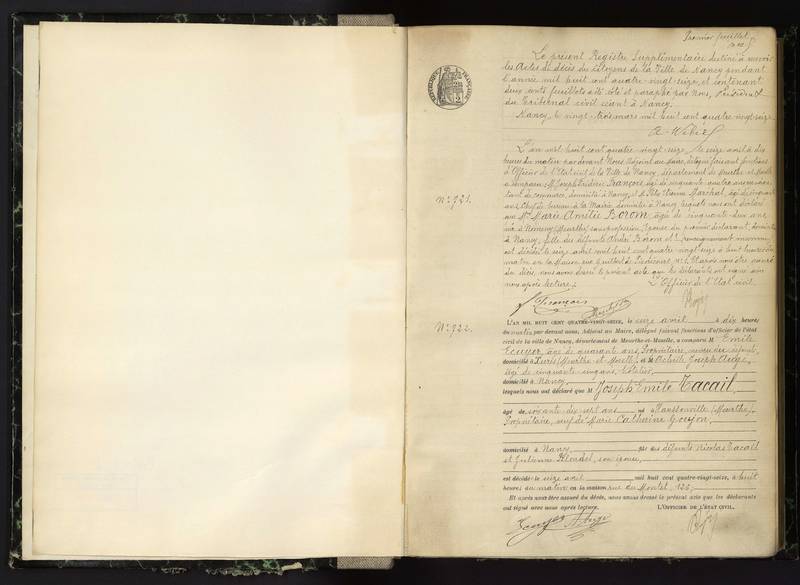 Premier feuillet
Le présent Registre Supplémentaire destiné à recevoir
les Actes de décès des Citoyens de la Ville de Nancy pendant
l'année mil huit cent quatre-vingt-seize, et contenant
deux cents feuillets a été coté et paraphé par Nous, Président
du Tribunal civil séant à Nancy.
Nancy, le vingt-trois mars mil huit cent quatre-vingt-seize
RÉPUBLIQUE FRANÇAISE
N° 721.
L'an mil huit cent quatre-vingt-seize, le seize avril à dix
heures du matin par devant Nous Adjoint au Maire, délégué faisant fonctions
d'Officier de l'Etat civil de la Ville de Nancy, département de Meurthe-et-Moselle
a comparu M. Joseph Frédéric François, âgé de cinquante-quatre ans,
de commerce, domicilié à Nancy, et M. Marchal, âgé de cinquante
ans, Chef de bureau à la Mairie, domicilié à Nancy, lesquels nous ont déclaré
que Mme Marie Amélie Borom, âgée de cinquante-deux ans
née à Nomeny (Meurthe), sans profession, Epouse du premier déclarant, domiciliée
à Nancy, fille des défunts André Borom et
est décédée le seize avril mil huit cent quatre-vingt-seize à huit heures du
matin en la Maison rue Guilbert de Pixérécourt, n° 1. Et après nous être assuré
du décès, nous avons dressé le présent acte que les déclarants ont signé avec
nous après lecture.
L'Officier de l'Etat civil.
François
N° 722.
L'AN MIL HUIT CENT QUATRE-VINGT-SEIZE, le seize avril à dix heures
du matin par devant nous, Adjoint au Maire, délégué faisant fonctions d'officier de l'état
civil de la ville de Nancy, département de Meurthe-et-Moselle, a comparu M Emile
Ecuyer, âgé de quarante ans, Propriétaire, neveu du défunt,
domicilié à (Meurthe et Moselle) et M Achille Joseph
âgé de cinquante-cinq ans, hôtelier,
domicilié à Nancy
lesquels nous ont déclaré que M Joseph Emile Tacail
âgé de soixante-dix-sept ans né à Hannonville (Meurthe),
Propriétaire, veuf de Marie Catherine Goujon,
domicilié à Nancy fils des défunts Nicolas Tacail
et Julienne Blondel, son épouse,
est décédé le seize avril mil huit cent quatre-vingt-seize, à huit
heures du matin en la maison rue du Montet, 126,
Et après nous être assuré du décès, nous avons dressé le présent acte que les déclarants
ont signé avec nous après lecture. L'OFFICIER DE L'ÉTAT CIVIL,
Ecuyer